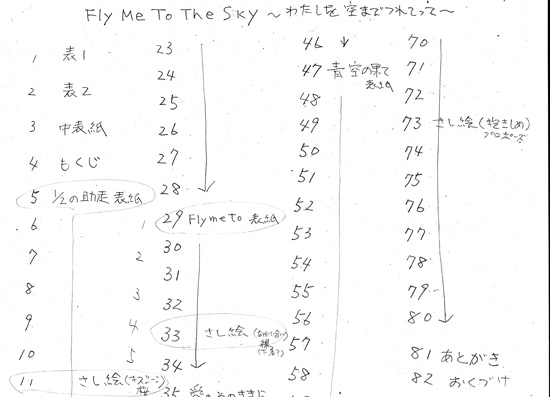 Fly Me To The Sky ～わたしを空までつれてって～
1 表1
2 表2
3 中表紙
4 もくじ
5 1/2の助走 表紙
6 1
7 2
8 3
9 4
10 5
11 さし絵(キズシーン)
23
24
25
26
27
28
29 Fly me to 表紙
30
31
32
33 さし絵
34
35
46
47 青空の果て 表紙
48
49
50
51
52
53
54
55
56
57
58
70
71
72
73 さし絵(抱きしめ) プロポーズ
74
75
76
77
78
79
80
81 あとがき
82 おくづけ